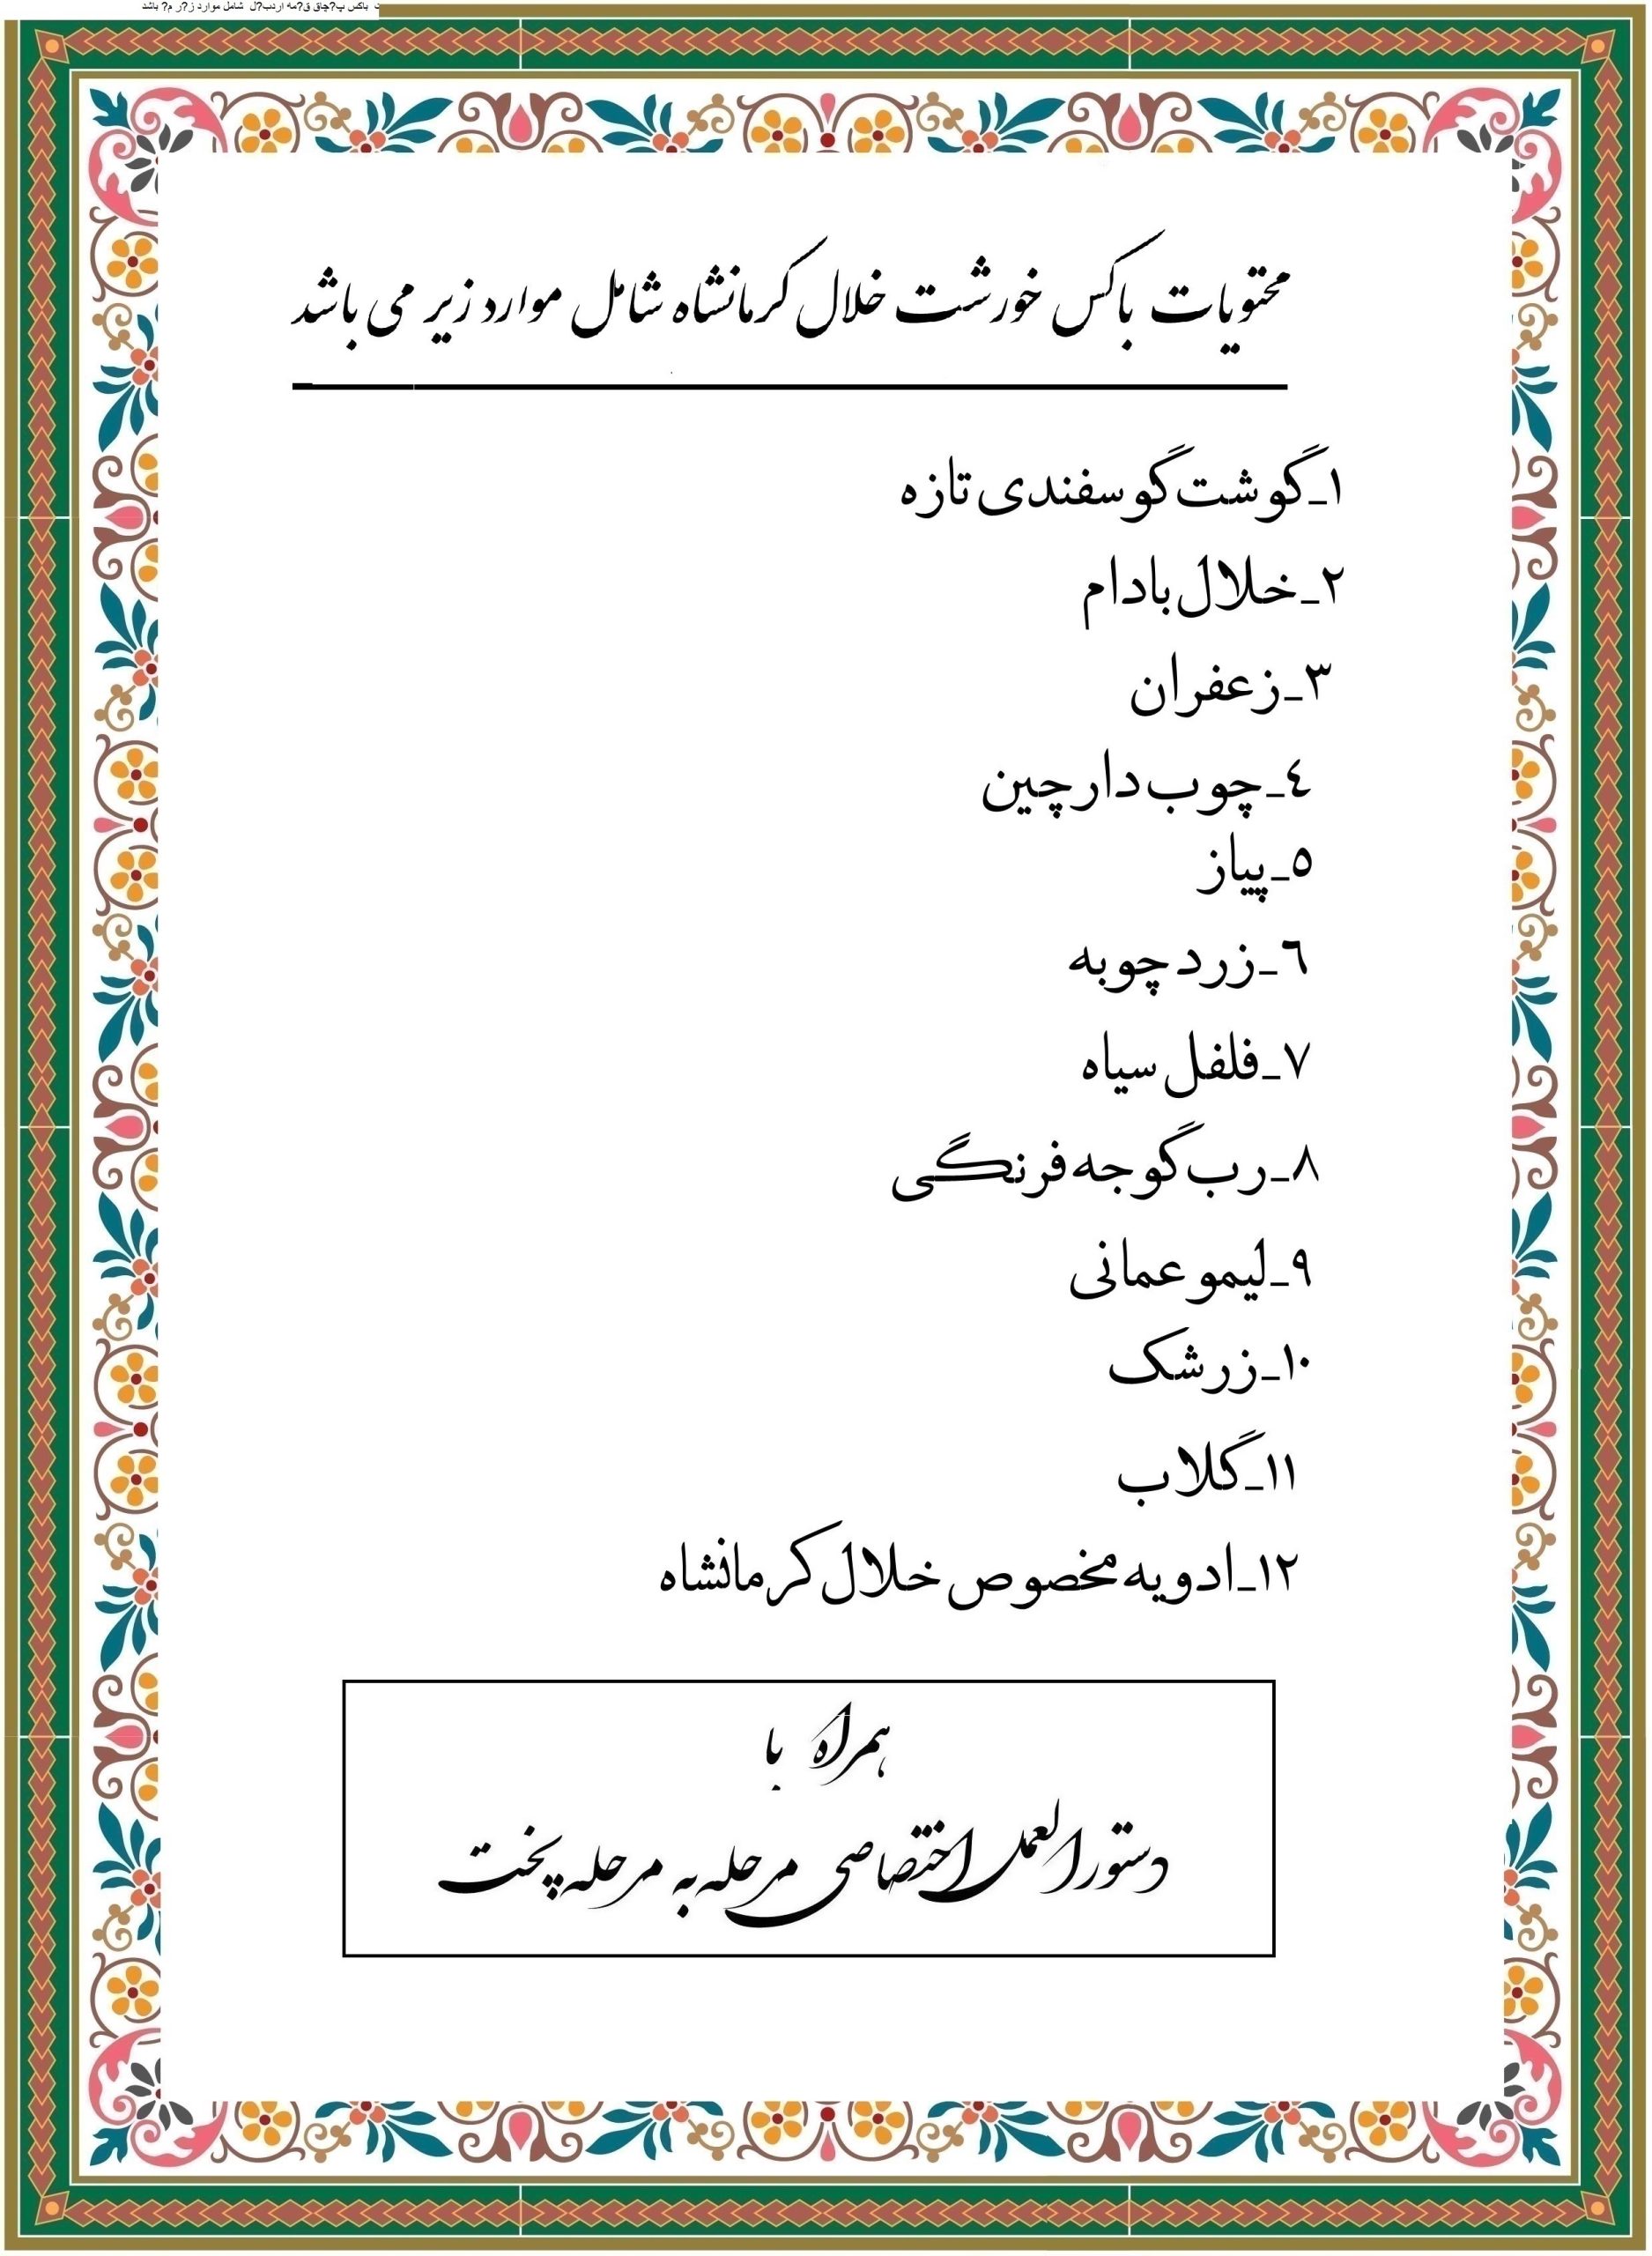 باکس پ?چاق ق?مه اردب?ل شامل موارد ز?ر م? باشد
محتویات باکس خورشت خلال کرمانشاه شامل موارد زیر می باشد
۱_گوشت گوسفندی تازه
۲_خلال بادام
۳_زعفران
٤_چوب دارچین
۵_پیاز
٦_زردچوبه
۷_فلفل سیاه
۸_رب گوجه فرنگی
۹_لیمو عمانی
۱۰_زرشک
۱۱_گلاب
۱۲_ادویه مخصوص خلال کرمانشاه
همراه با
دستورالعمل اختصاصی مرحله به مرحله پخت